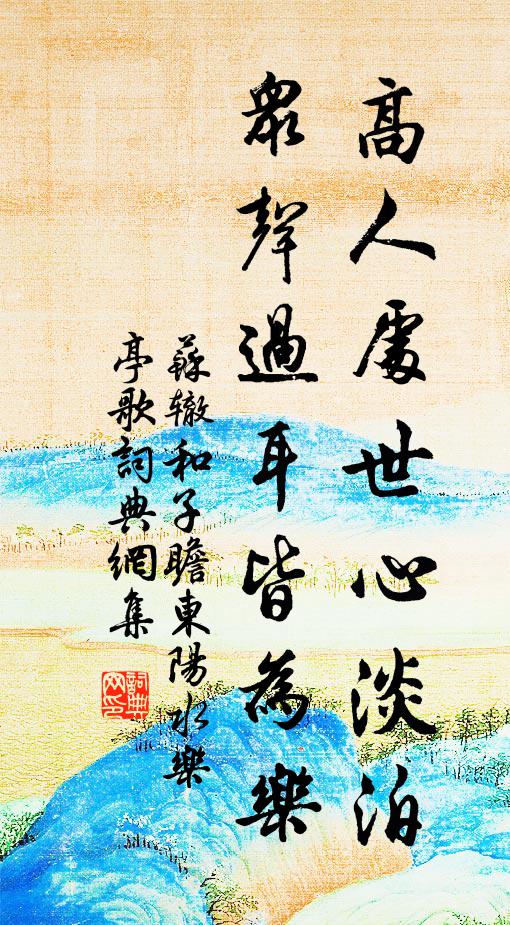 高人處世心淡泊
眾聲過耳皆為樂
蘇轍和子瞻東陽水樂
亭歌詞典網集
詞典
网印